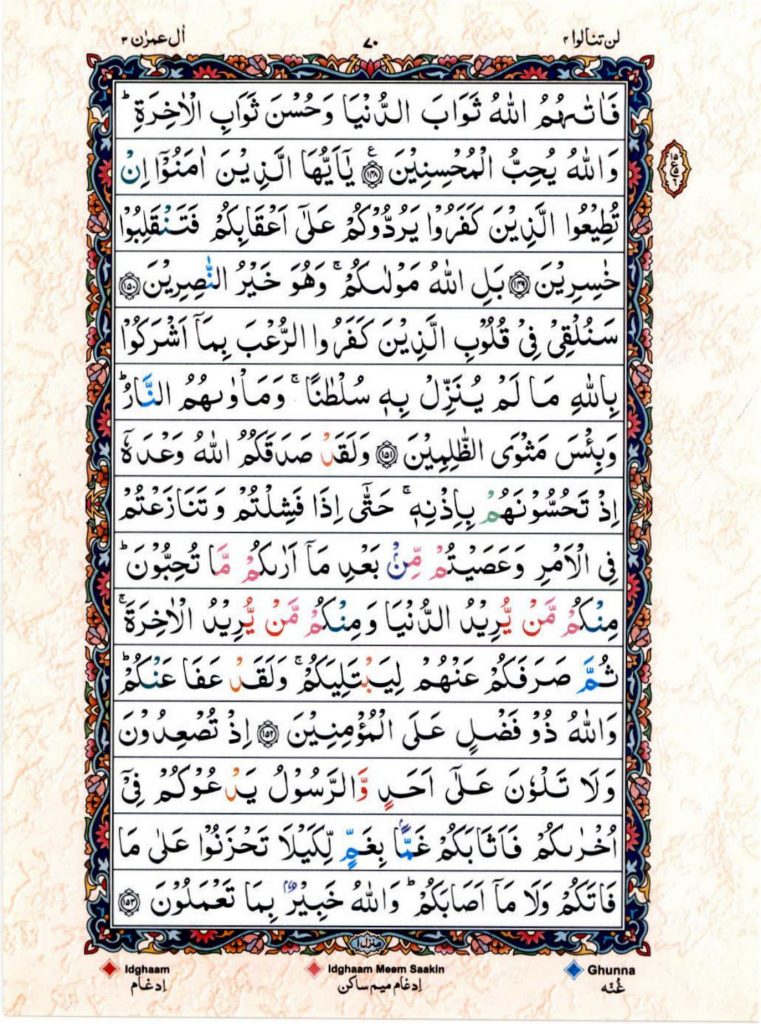 لن تنالوا ۴ ۷۰ اٰل عمرٰن ۳
فَاٰتٰىهُمُ اللّٰهُ ثَوَابَ الدُّنْيَا وَحُسْنَ ثَوَابِ الْاٰخِرَةِ ؕ
وَاللّٰهُ يُحِبُّ الْمُحْسِنِيْنَ ﴿۱۴۸﴾ ع يٰۤاَيُّهَا الَّذِيْنَ اٰمَنُوْۤا اِنْ
تُطِيْعُوا الَّذِيْنَ كَفَرُوْا يَرُدُّوْكُمْ عَلٰٓى اَعْقَابِكُمْ فَتَنْقَلِبُوْا
خٰسِرِيْنَ ﴿۱۴۹﴾ بَلِ اللّٰهُ مَوْلٰٮكُمْ ۚ وَهُوَ خَيْرُ النّٰصِرِيْنَ ﴿۱۵۰﴾
سَنُلْقِىْ فِىْ قُلُوْبِ الَّذِيْنَ كَفَرُوا الرُّعْبَ بِمَاۤ اَشْرَكُوْا
بِاللّٰهِ مَا لَمْ يُنَزِّلْ بِهٖ سُلْطٰنًا ۚ وَمَاْوٰٮهُمُ النَّارُ ؕ
وَبِئْسَ مَثْوَى الظّٰلِمِيْنَ ﴿۱۵۱﴾ وَلَقَدْ صَدَقَكُمُ اللّٰهُ وَعْدَهٗۤ
اِذْ تَحُسُّوْنَهُمْ بِاِذْنِهٖ ۚ حَتّٰۤى اِذَا فَشِلْتُمْ وَتَنَازَعْتُمْ
فِى الْاَمْرِ وَعَصَيْتُمْ مِّنْۢ بَعْدِ مَاۤ اَرٰٮكُمْ مَّا تُحِبُّوْنَ ؕ
مِنْكُمْ مَّنْ يُّرِيْدُ الدُّنْيَا وَمِنْكُمْ مَّنْ يُّرِيْدُ الْاٰخِرَةَ ۚ
ثُمَّ صَرَفَكُمْ عَنْهُمْ لِيَبْتَلِيَكُمْ ۚ وَلَقَدْ عَفَا عَنْكُمْ ؕ
وَاللّٰهُ ذُوْ فَضْلٍ عَلَى الْمُؤْمِنِيْنَ ﴿۱۵۲﴾ اِذْ تُصْعِدُوْنَ
وَلَا تَلْوٗنَ عَلٰٓى اَحَدٍ وَّالرَّسُوْلُ يَدْعُوْكُمْ فِىْۤ
اُخْرٰٮكُمْ فَاَثَابَكُمْ غَمًّاۢ بِغَمٍّ لِّكَيْلَا تَحْزَنُوْا عَلٰى مَا
فَاتَكُمْ وَلَا مَاۤ اَصَابَكُمْ ؕ وَاللّٰهُ خَبِيْرٌۢ بِمَا تَعْمَلُوْنَ ﴿۱۵۳﴾
منزل ۱
Idghaam Idghaam Meem Saakin Ghunna
اِدغام اِدغام میم ساکن غُنّه